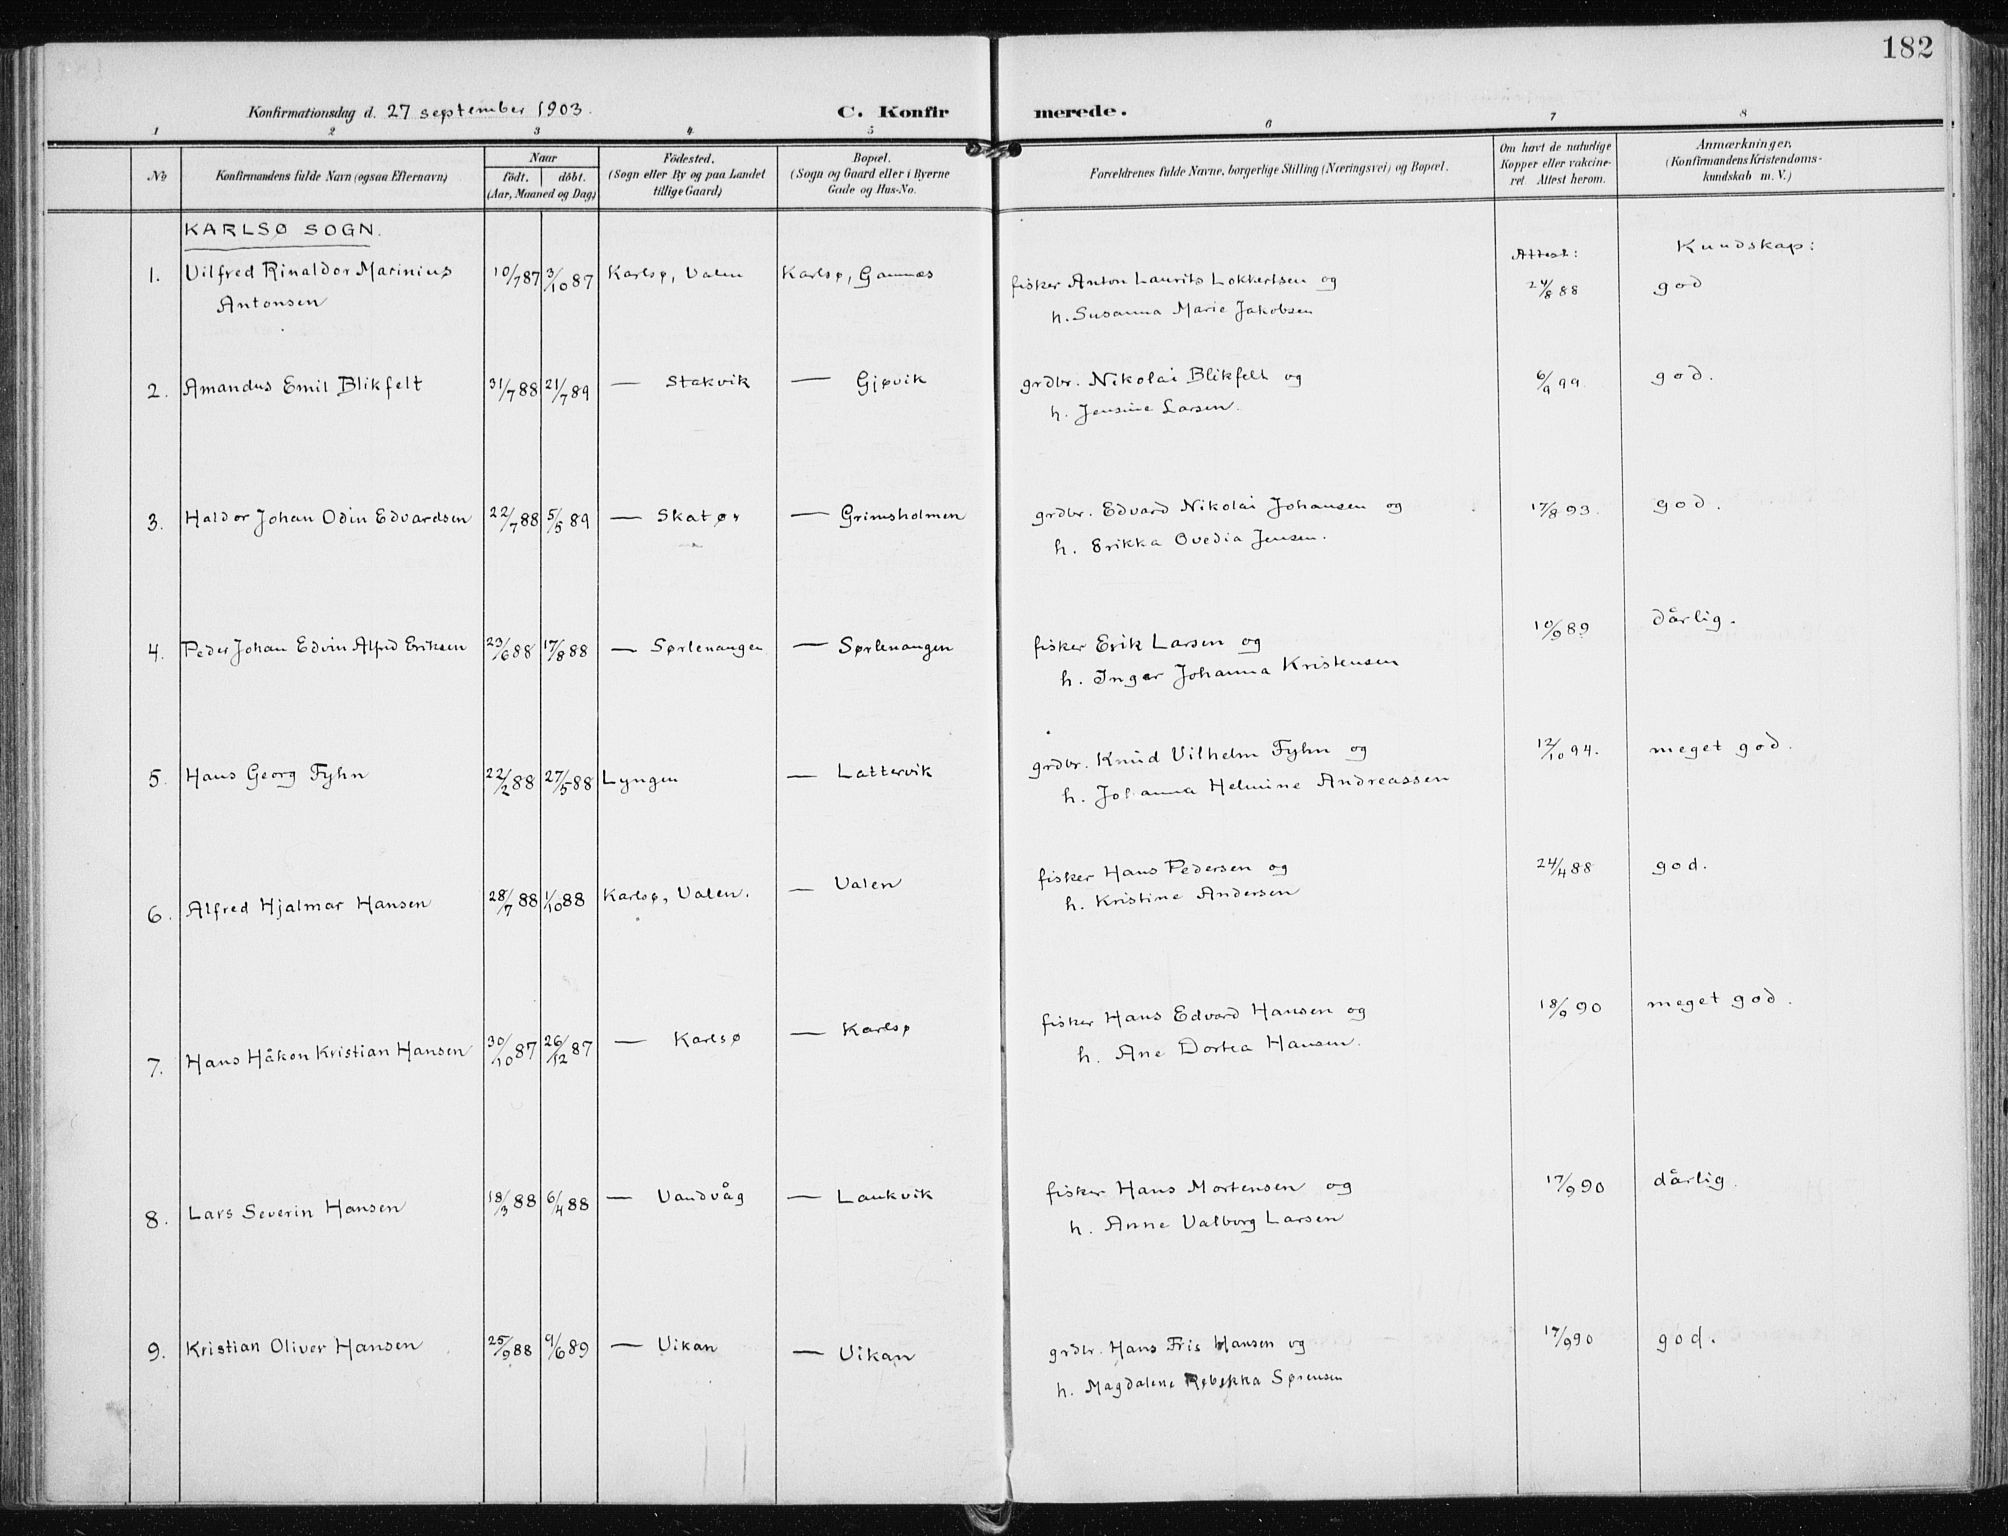 182
Konfirmationsdag d. 27 september 1903.
C. Konfirmerede.
1 2 3 4 5 6 7 8
No
Konfirmandens fulde Navn (ogsaa Efternavn)
Naar
födt. döbt.
(Aar, Maaned og Dag)
Födested.
(Sogn eller By og paa Landet
tillige Gaard)
Bopæl.
(Sogn og Gaard eller i Byerne
Gade og Hus-No.
Forældrenes fulde Navne, borgerlige Stilling (Næringsvei) og Bopæl.
Om havt de naturlige
Kopper eller vakcine-
ret. Attest herom.
Anmærkninger,
(Konfirmandens Kristendoms-
kundskab m. V.)
KARLSØ SOGN.
Attest: Kundskap:
1. Vilfred Rinaldor Marinius 10/7 87 3/10 87 Karlsø, Valen Karlsø, Gamnæs fisker Anton Laurits Lokkertsen og 24/8 88 god
Antonsen h. Susanna Marie Jakobsen
2. Amandus Emil Blikfelt 31/7 88 21/7 89 — Stakvik — Gjøvik grdbr. Nikolai Blikfelt og 6/9 99. god.
h. Jensine Larsen.
3. Haldor Johan Odin Edvardsen 22/7 88 5/5 89 — Skatør — Grimsholmen grdbr. Edvard Nikolai Johansen og 17/8 93. god.
h. Erikka Ovedia Jensen.
4. Peder Johan Edvin Alfred Eriksen 23/6 88 17/8 88 — Sørlenangen — Sørlenangen fisker Erik Larsen og 10/9 89 dårlig.
h. Inger Johanna Kristensen
5. Hans Georg Fyhn 22/2 88 27/5 88 Lyngen — Lattervik grdbr. Knud Vilhelm Fyhn og 12/10 94. meget god.
h. Johanna Helmine Andreassen
6. Alfred Hjalmar Hansen 28/7 88 1/10 88 Karlsø, Valen. — Valen fisker Hans Pedersen og 24/4 88 god.
h. Kristine Andersen
7. Hans Håkon Kristian Hansen 30/10 87 26/12 87 — Karlsø — Karlsø fisker Hans Edvard Hansen og 18/9 90 meget god.
h. Ane Dortea Hansen.
8. Lars Severin Hansen 18/3 88 6/4 88 — Vandvåg — Laukvik fisker Hans Mortensen og 17/9 90 dårlig.
h. Anne Valborg Larsen
9. Kristian Oliver Hansen 25/9 88 9/6 89 — Vikan — Vikan grdbr. Hans Fris Hansen og 17/9 90 god.
h. Magdalene Rebekka Sørensen